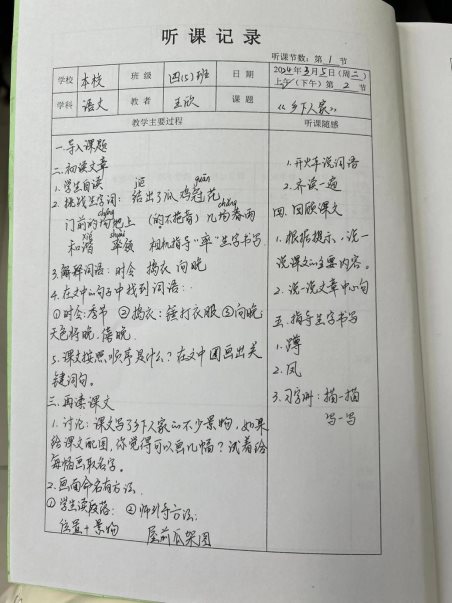 听课记录
听课节数：第1节
学校 本校 班级 四(5)班 日期 2024年3月5日(周二)
上午(下午)第2节
学科 语文 教者 王欣 课题 《乡下人家》
教学主要过程
一.导入课题
二.初读文章
1.学生自读
jié guān
2.挑战生字词：结出了瓜 鸡冠花
chǎng
门前的场地上 (的不拖音) 几场春雨
xié shuài
和谐 率领 相机指导"率"生字书写
3.解释词语：时令 捣衣 向晚
4.在文中的句子中找到词语：
①时令：季节 ②捣衣：锤打衣服 ③向晚
天色将晚，傍晚
5.课文按照顺序是什么？在文中圈画出关
键词句。
三.再读课文
1.讨论：课文写了乡下人家的不少景物，如果
给课文配图，你觉得可以画几幅？试着给
每幅画取名字。
2.画面命名有方法
①学生读段落： ②师引导方法：
位置+景物 屋前瓜架图
听课随感
1.开火车说词语
2.齐读一遍
四.回顾课文
1.根据提示，说一
说课文的主要内容。
2.说一说文章中心句
五.指导生字书写
1.蹲
2.凤
3.习字册：描一描
写一写